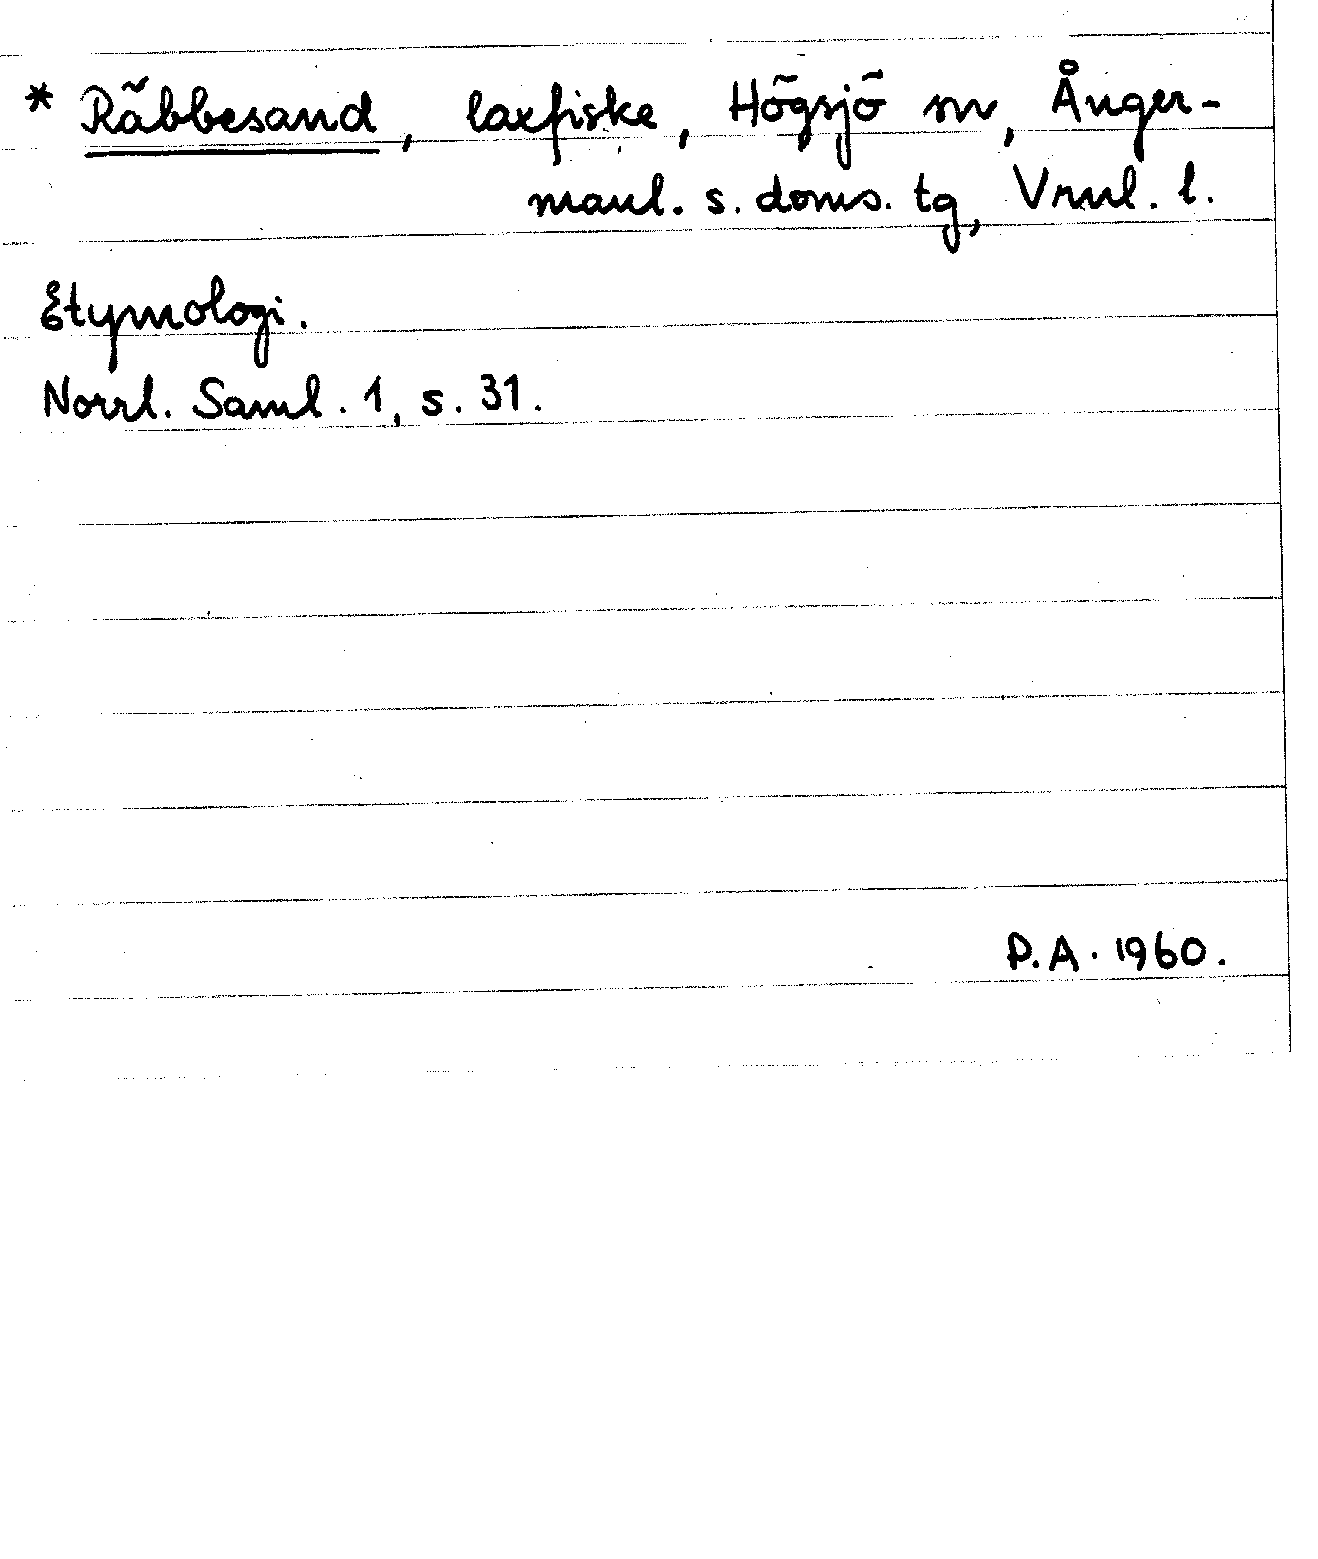 * Räbbesand, laxfiske, Högsjö sn, Ånger-
manl. s. doms. tg, Vrnl. l.
Etymologi.
Norrl. Saml. 1, s. 31.
P.A. 1960.